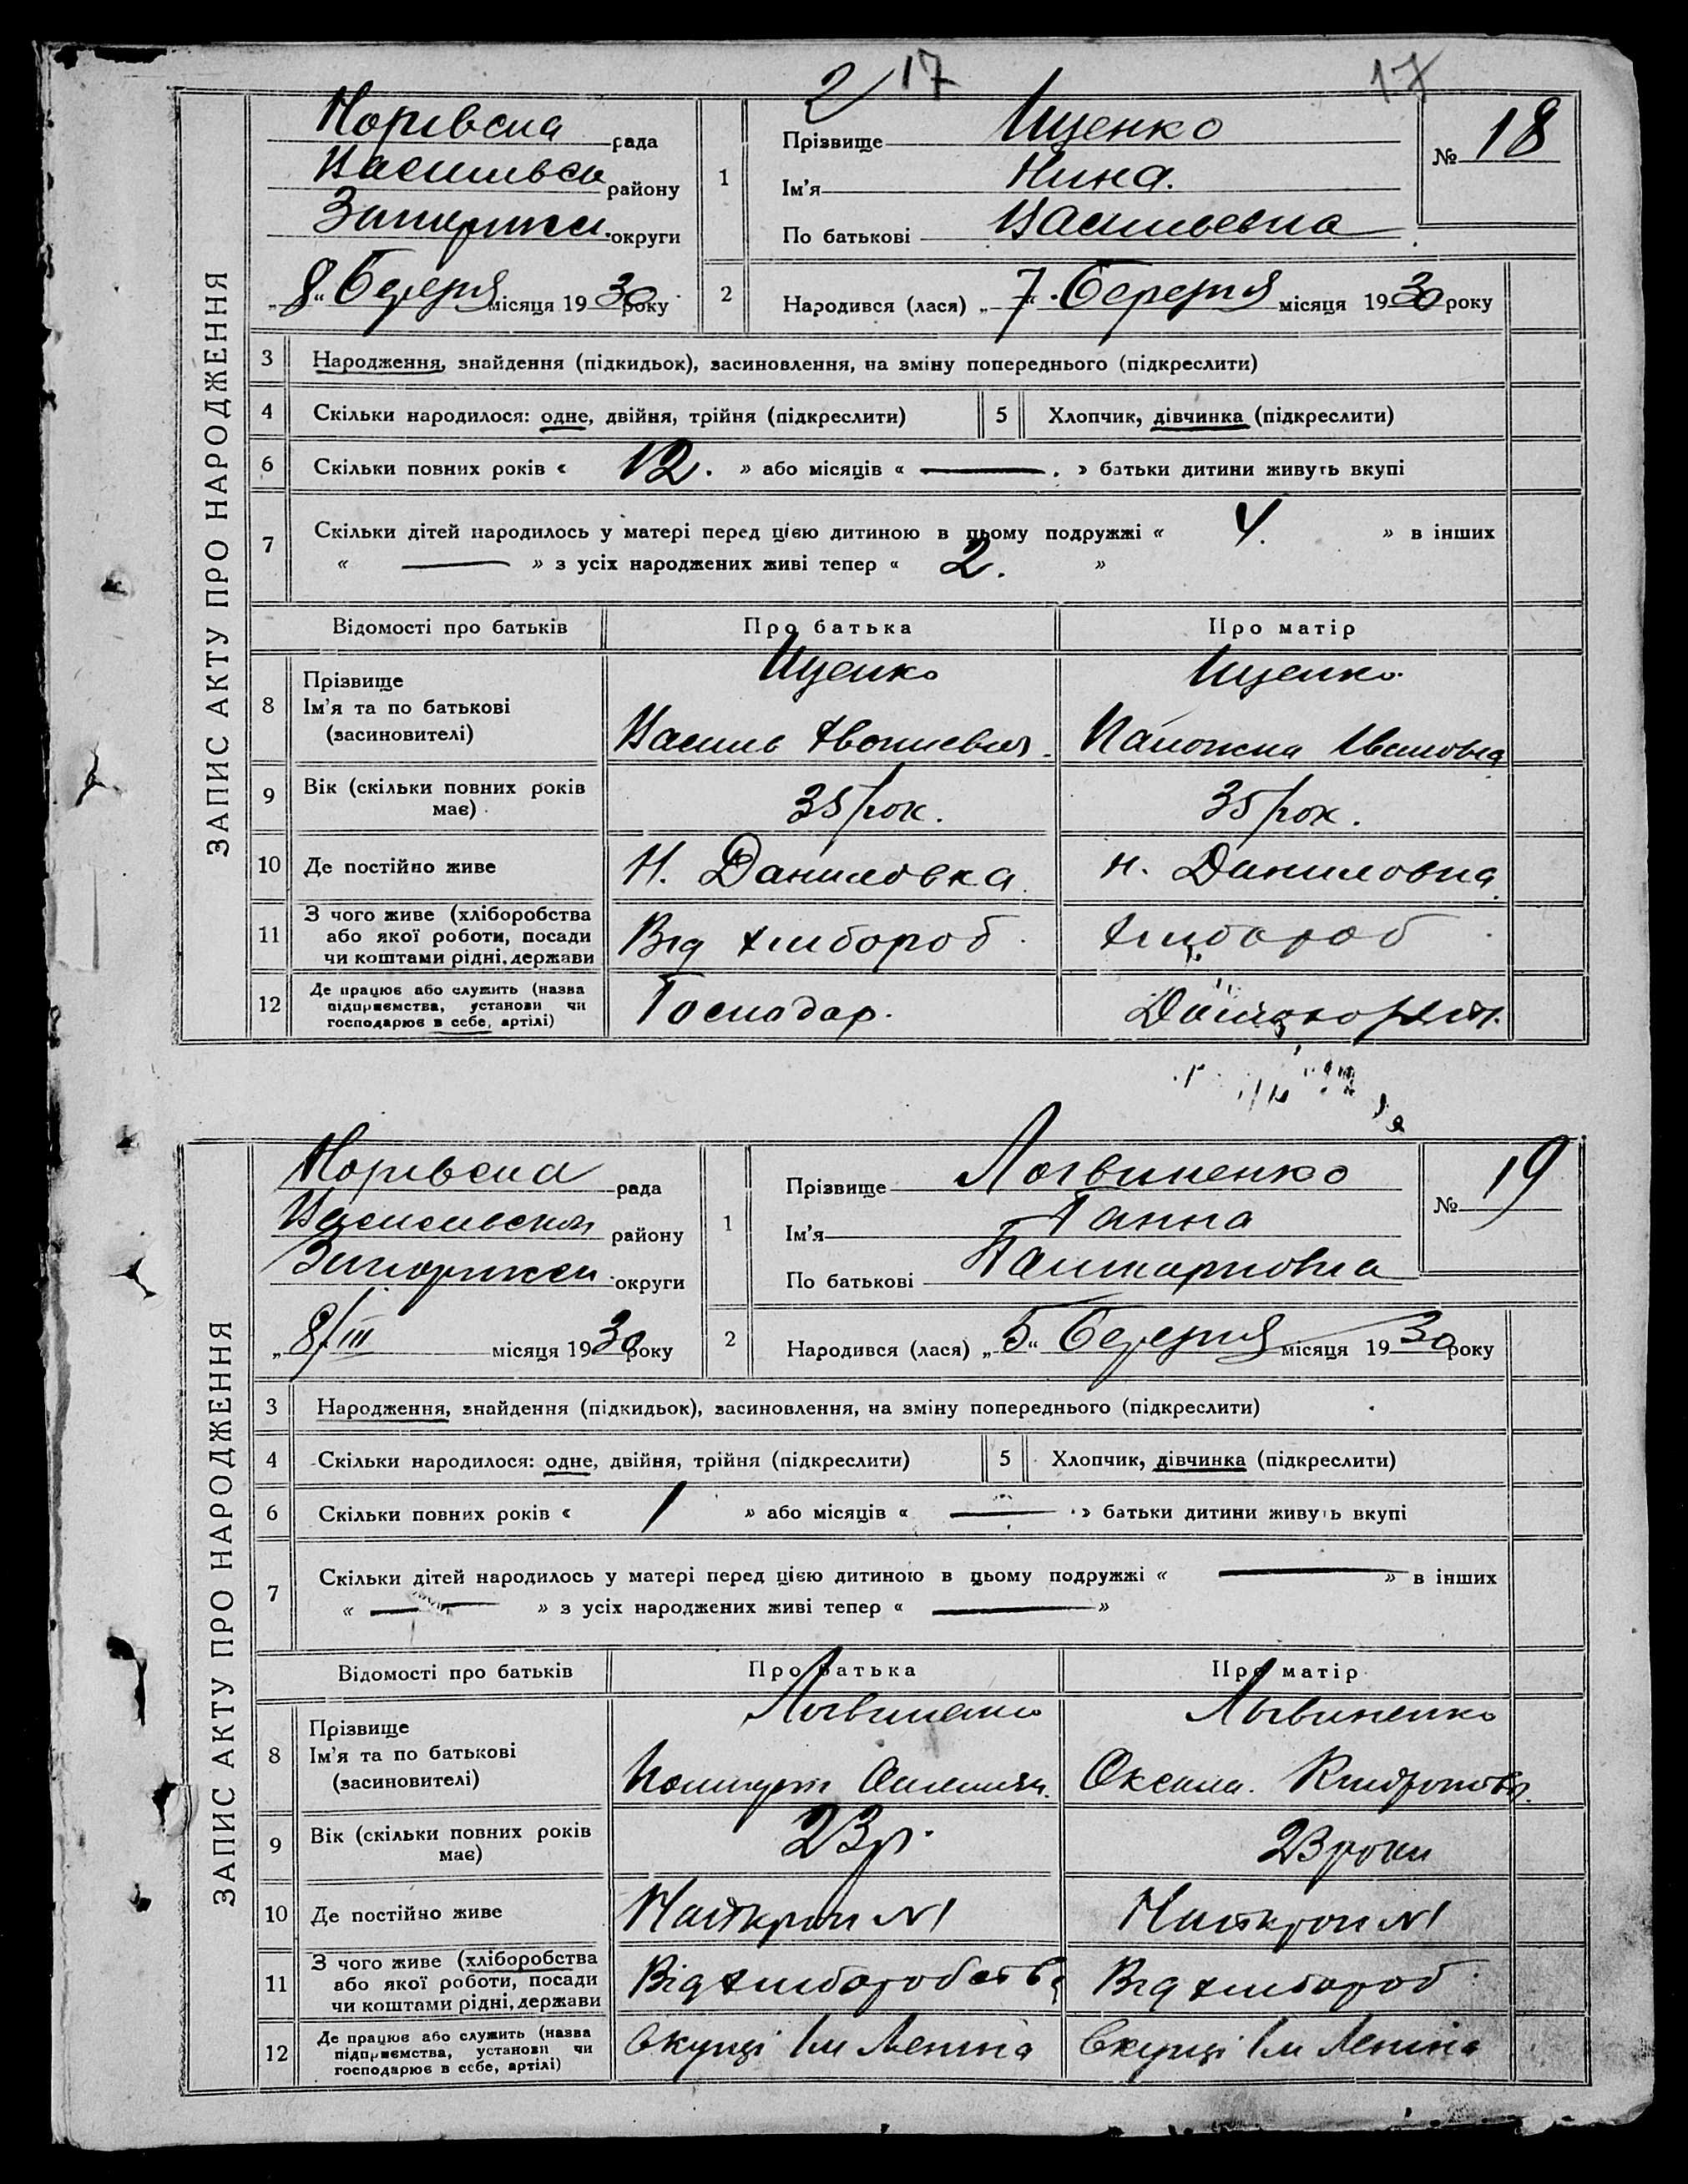 2 17 17
ЗАПИС АКТУ ПРО НАРОДЖЕННЯ
рада
району
округи
„8“ Березня місяця 1930 року
1
Прізвище Ищенко
Ім'я Нина.
По батькові Васильевна
№ 18
2
Народився (лася) „7“ Березня місяця 1930 року
3 Народження, знайдення (підкидьок), засиновлення, на зміну попереднього (підкреслити)
4 Скільки народилося: одне, двійня, трійня (підкреслити) 5 Хлопчик, дівчинка (підкреслити)
6 Скільки повних років « 12. » або місяців « — . » батьки дитини живуть вкупі
7 Скільки дітей народилось у матері перед цією дитиною в цьому подружжі « 4. » в інших
« — » з усіх народжених живі тепер « 2. »
Відомості про батьків Про батька Про матір
8 Прізвище
Ім'я та по батькові
(засиновителі)
Ищенко
Василь
Ищенко
Ивановна
9 Вік (скільки повних років
має)
35 рок. 35 рок.
10 Де постійно живе Н. Даниловка Н. Даниловка
11 З чого живе (хліборобства
або якої роботи, посади
чи коштами рідні, держави
Від хлібороб хлібороб
12 Де працює або служить (назва
підприємства, установи чи
господарює в себе, артілі)
Господар.
ЗАПИС АКТУ ПРО НАРОДЖЕННЯ
рада
району
округи
„8/III місяця 1930 року
1
Прізвище Логвиненко
Ім'я Ганна
По батькові
№ 19
2
Народився (лася) „5“ Березня місяця 1930 року
3 Народження, знайдення (підкидьок), засиновлення, на зміну попереднього (підкреслити)
4 Скільки народилося: одне, двійня, трійня (підкреслити) 5 Хлопчик, дівчинка (підкреслити)
6 Скільки повних років « 1 » або місяців « — » батьки дитини живуть вкупі
7 Скільки дітей народилось у матері перед цією дитиною в цьому подружжі « — » в інших
« — » з усіх народжених живі тепер « — »
Відомості про батьків Про батька Про матір
8 Прізвище
Ім'я та по батькові
(засиновителі)
Логвиненко
Логвиненко
Оксана.
9 Вік (скільки повних років
має)
23 р. 23 роки
10 Де постійно живе
№1 №1
11 З чого живе (хліборобства
або якої роботи, посади
чи коштами рідні, держави
Від хліборобства Від хлібороб
12 Де працює або служить (назва
підприємства, установи чи
господарює в себе, артілі)
Ім Леніна Ім Леніна